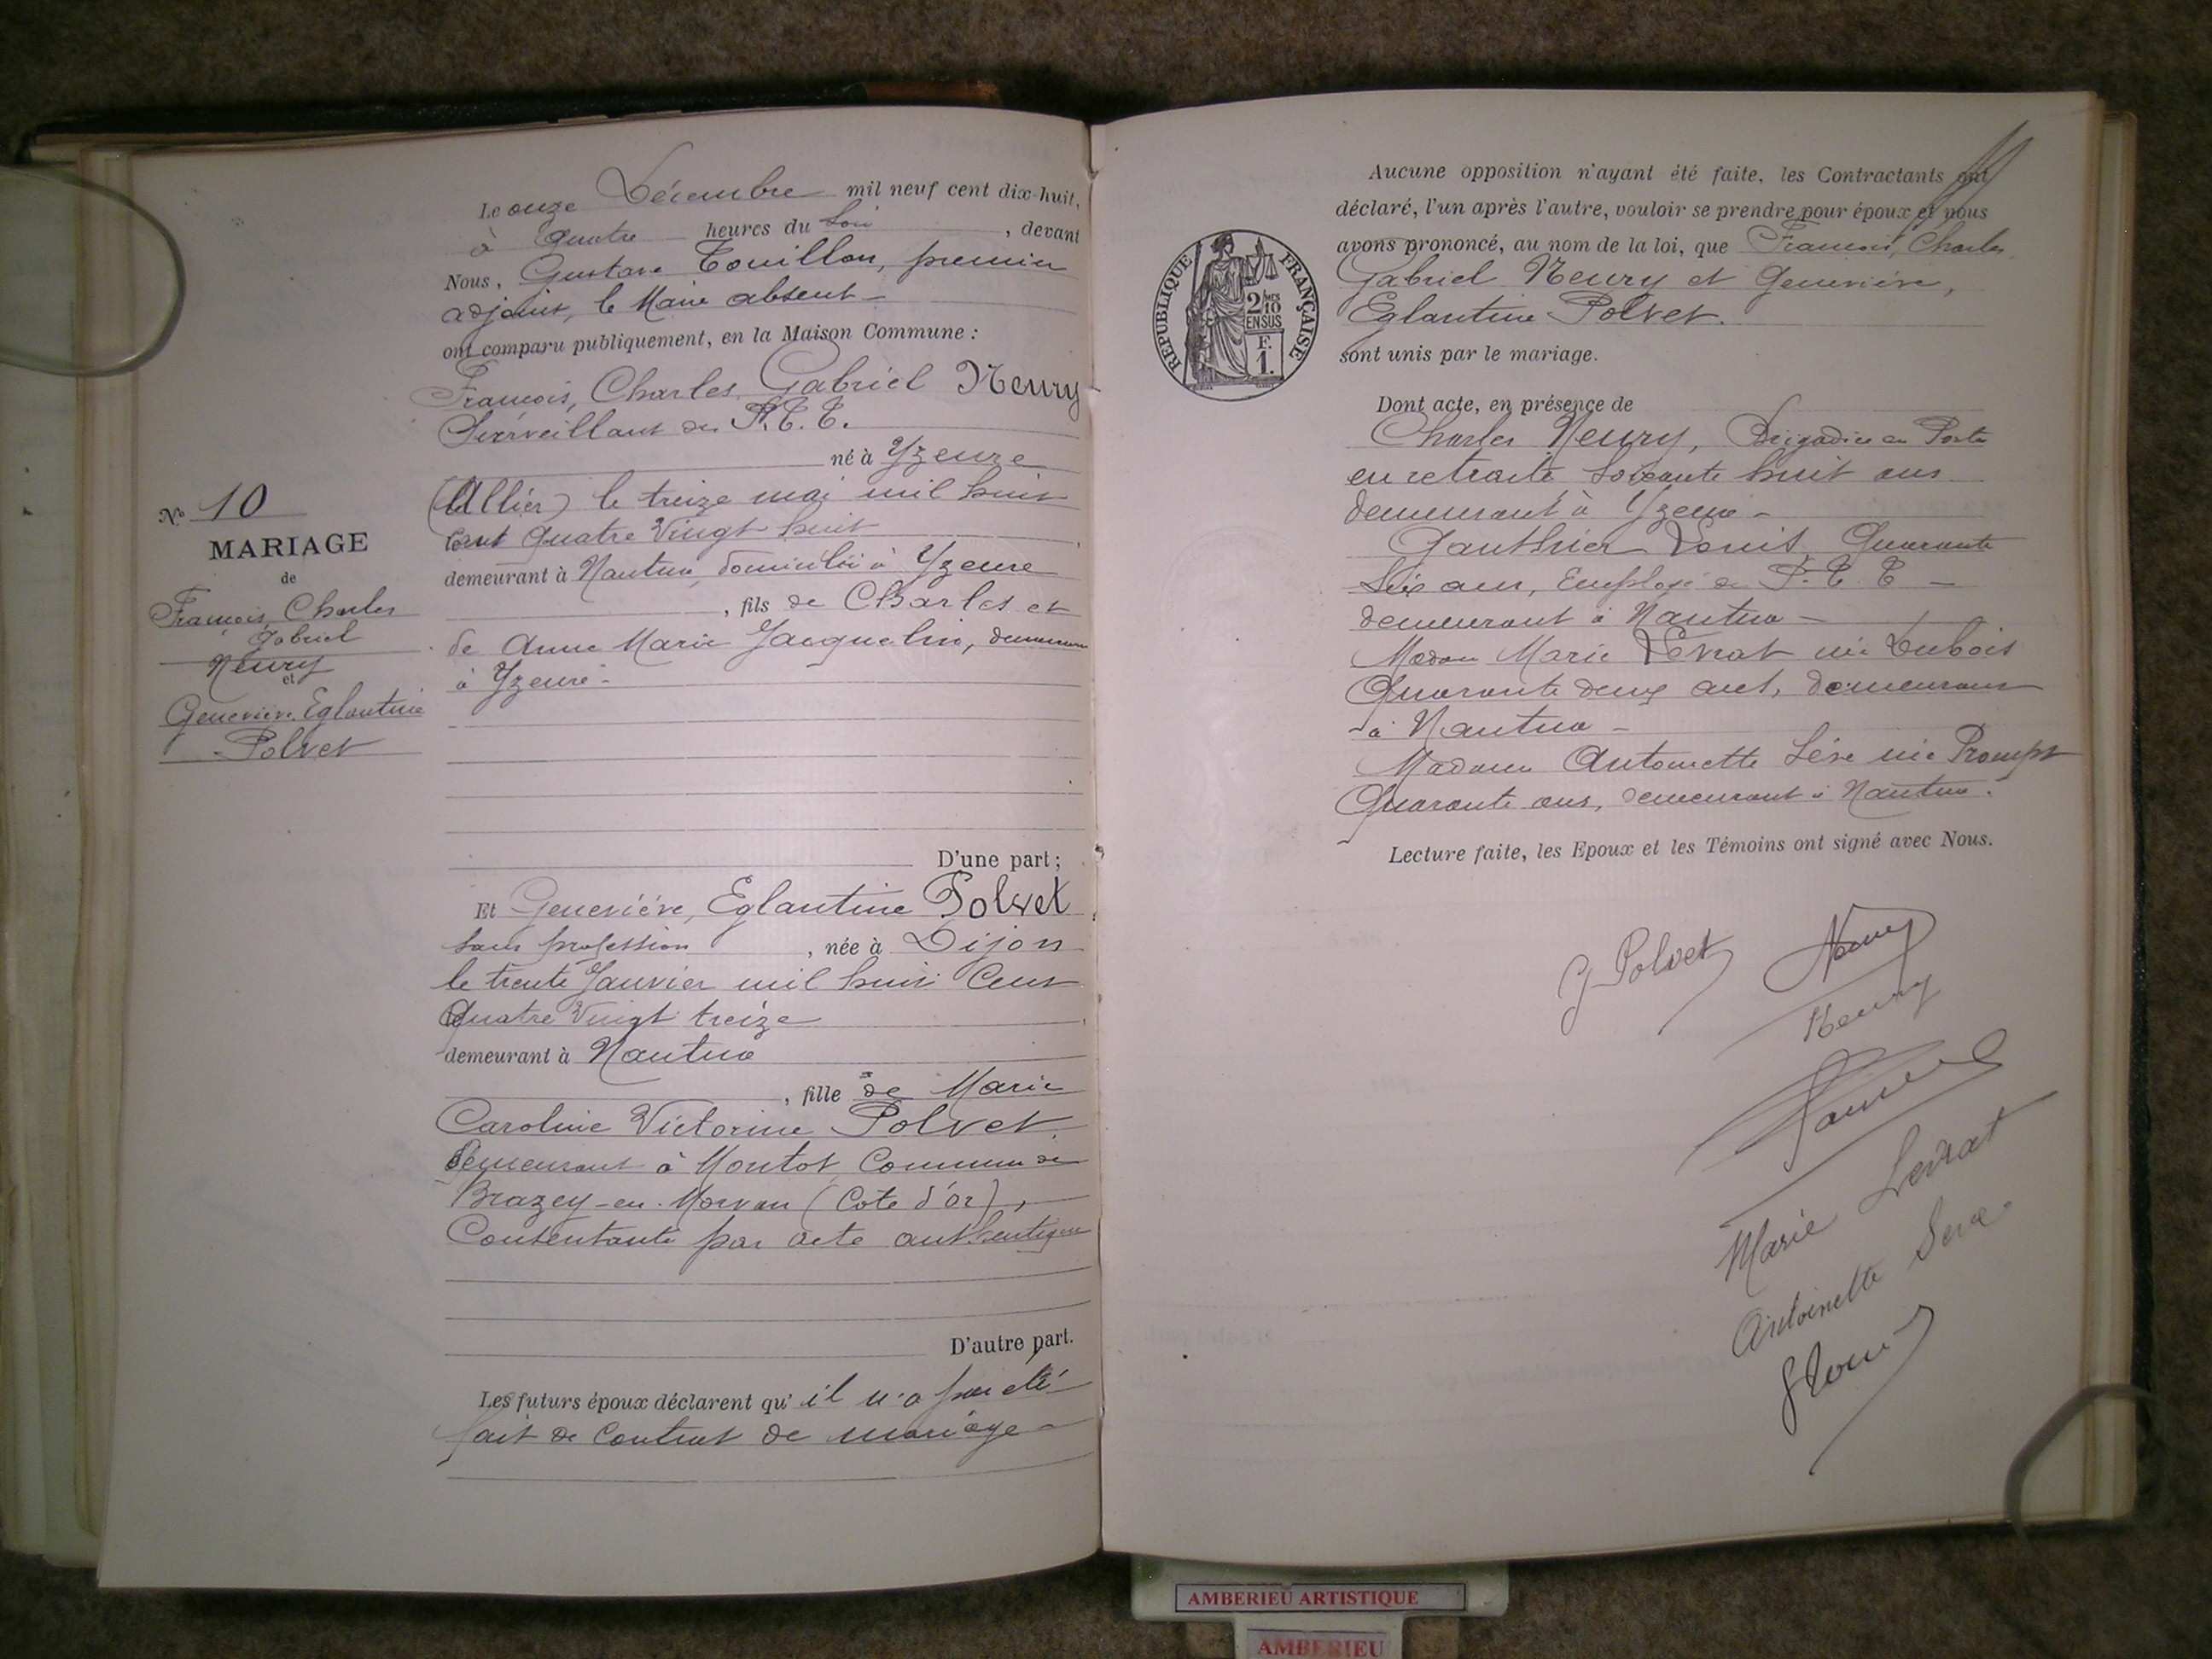 Le onze Décembre mil neuf cent dix-huit,
à Quatre heures du Soir, devant
Nous, Gustave Touillon, premier
adjoint, le Maire absent -
ont comparu publiquement, en la Maison Commune :
François, Charles, Gabriel Neury
Surveillant des P.T.T.
né à Yzeure
(Allier) le treize mai mil huit
Cent Quatre Vingt huit
demeurant à Nantua, domicilié à Yzeure
, fils de Charles et
de Anne Marie Jacquelin, demeurant
à Yzeure -
N° 10
MARIAGE
de
François, Charles
Gabriel
Neury
et
Geneviève Eglantine
Polvet
D'une part ;
Et Geneviève, Eglantine Polvet
sans profession, née à Dijon
le trente Janvier mil huit Cent
Quatre Vingt treize
demeurant à Nantua
, fille de Marie
Caroline Victorine Polvet,
demeurant à Montot Commune de
Brazey-en-Morvan (Cote d'or),
Consentante par acte authentique
D'autre part.
Les futurs époux déclarent qu'il n'a pas été
fait de Contrat de mariage -
Aucune opposition n'ayant été faite, les Contractants ont
déclaré, l'un après l'autre, vouloir se prendre pour époux et nous
avons prononcé, au nom de la loi, que François, Charles,
Gabriel Neury et Geneviève,
Eglantine Polvet.
sont unis par le mariage.
RÉPUBLIQUE FRANÇAISE
2/10 MES
EN SUS
F.
1.
Dont acte, en présence de
Charles Neury, Brigadier en Poste
en retraite Soixante huit ans
demeurant à Yzeure -
Gauthier Louis, Quarante
Six ans, Employé des P.T.T -
demeurant à Nantua -
Madame Marie Levrat née Dubois
Quarante deux ans, demeurant
à Nantua -
Madame Antoinette Sève née Prompt
Quarante ans, demeurant à Nantua.
Lecture faite, les Epoux et les Témoins ont signé avec Nous.
G Polvet Neury
Neury
Marie Levrat
Antoinette Seve
AMBERIEU ARTISTIQUE
AMBERIEU